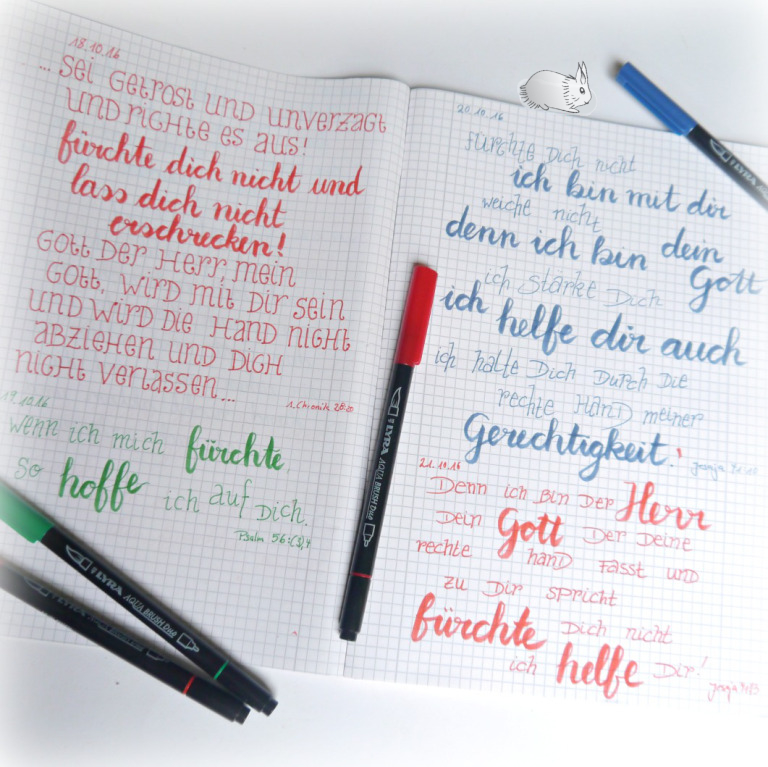 18.10.16
... sei getrost und unverzagt
und richte es aus!
fürchte dich nicht und
lass dich nicht
erschrecken!
Gott der Herr, mein
Gott, wird mit dir sein
und wird die Hand nicht
abziehen und dich
nicht verlassen...
1. Chronik 28:20
19.10.16
wenn ich mich fürchte
so hoffe ich auf Dich.
Psalm 56:(3),4
20.10.16
fürchte Dich nicht
ich bin mit dir
weiche nicht
denn ich bin dein
Gott
ich stärke Dich
ich helfe dir auch
ich halte Dich Durch Die
rechte Hand meiner
Gerechtigkeit!
21.10.16
Denn ich bin Der Herr
Dein Gott Der Deine
rechte hand fasst und
zu Dir spricht
fürchte Dich nicht
ich helfe Dir!
LYRA AQUA BRUSH DUO
LYRA AQUA BRUSH DUO
LYRA